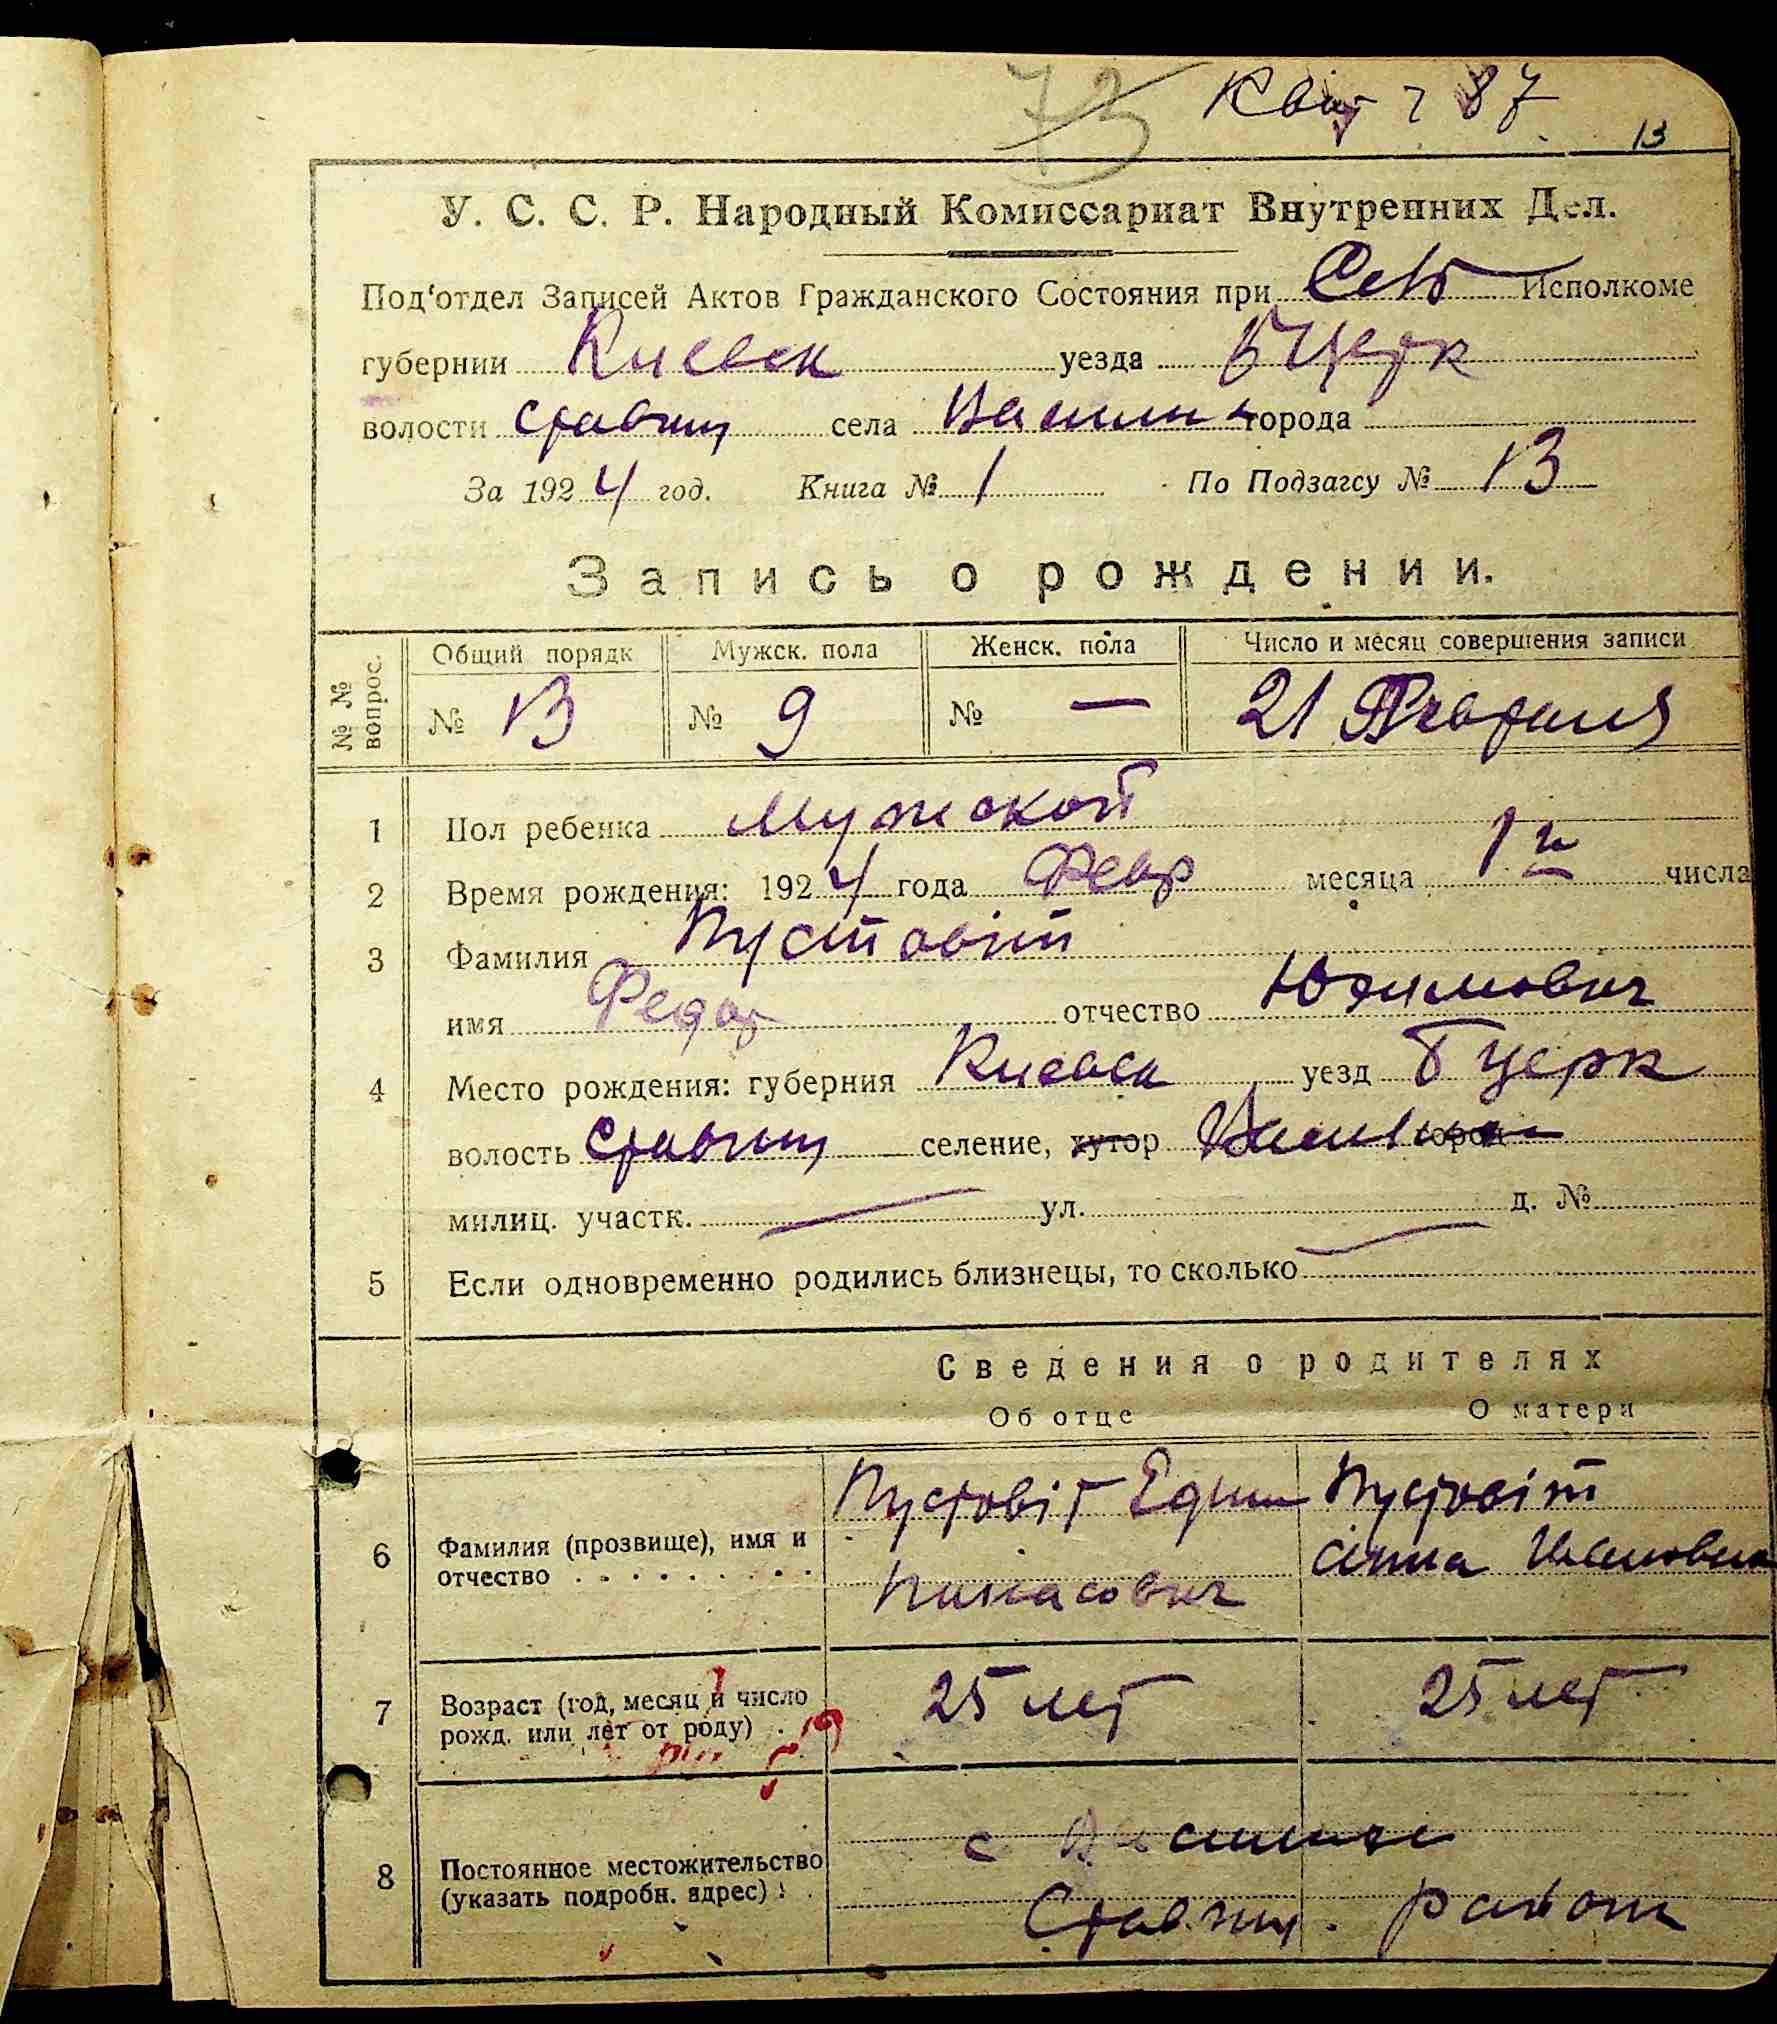 73 Квит 87
13
У. С. С. Р. Народный Комиссариат Внутренних Дел.
Под'отдел Записей Актов Гражданского Состояния при Исполкоме
губернии Киевск уезда БЦерк
волости Ставищ села города
За 1924 год. Книга № 1 По Подзагсу № 13
Запись о рождении.
№№ вопрос. Общий порядк Мужск. пола Женск. пола Число и месяц совершения записи
№ 13 № 9 № — 21 Февраля
1 Пол ребенка Мужской
2 Время рождения: 1924 года Февр месяца 1го числа
3 Фамилия Пустовіт
имя Федор отчество Юхимович
4 Место рождения: губерния Киевск уезд Бцерк
волость Ставищ селение, хутор город
милиц. участк. — ул. д. №
5 Если одновременно родились близнецы, то сколько —
Сведения о родителях
Об отце О матери
6 Фамилия (прозвище), имя и отчество Пустовіт Пустовіт
Анна Ивановна
7 Возраст (год, месяц и число рожд. или лет от роду) 25 лет 25 лет
8 Постоянное местожительство (указать подробн. адрес) с
Ставищ. район